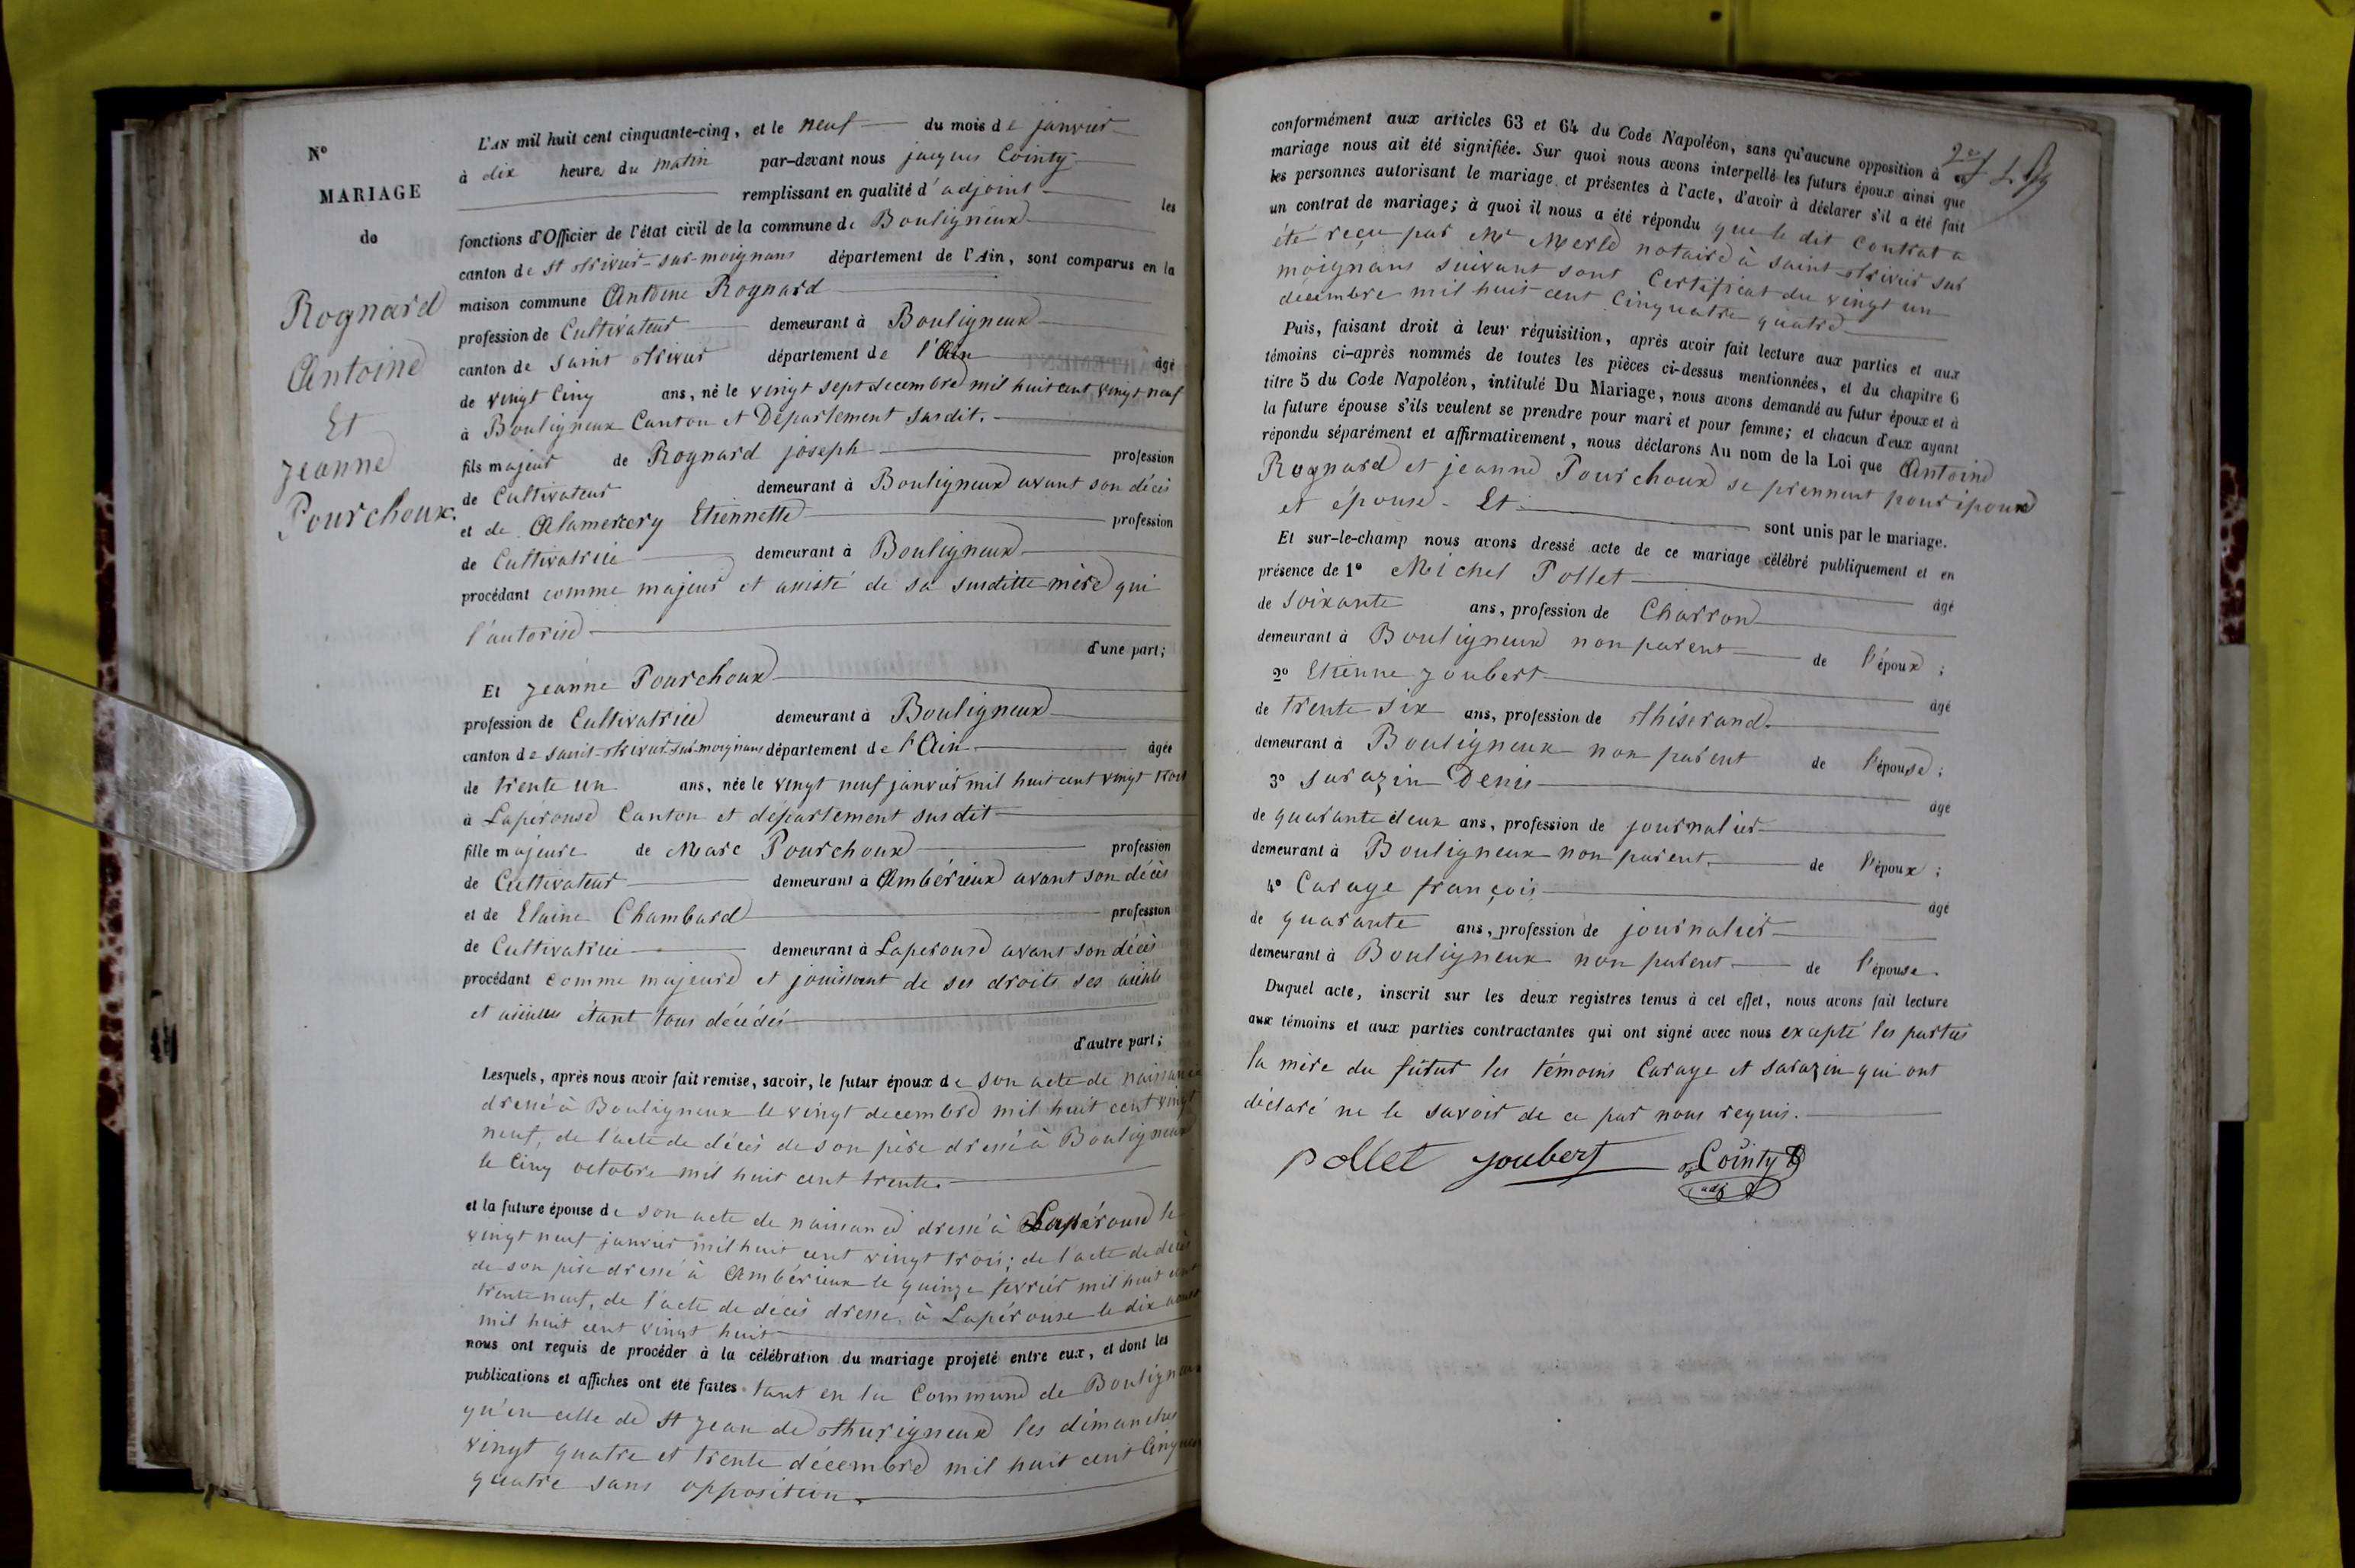 N°
MARIAGE
de
Rognard
Antoine
Et
Jeanne
Pourchoux.
L'AN mil huit cent cinquante-cinq, et le neuf du mois de janvier
à dix heures du matin par-devant nous jacques Cointy
remplissant en qualité d'adjoint les
fonctions d'Officier de l'état civil de la commune de Bouligneux
canton de St Trivier-sur-moignans département de l'Ain, sont comparus en la
maison commune Antoine Rognard
profession de Cultivateur demeurant à Bouligneux
canton de saint Trivier département de l'Ain âgé
de vingt Cinq ans, né le vingt sept decembre mil huit cent vingt neuf
à Bouligneux Canton et Département susdit.
fils majeur de Rognard joseph profession
de Cultivateur demeurant à Bouligneux avant son décès
et de Alamercery Etiennette profession
de Cultivatrice demeurant à Bouligneux
procédant comme majeur et assisté de sa susditte mère qui
l'autorise
d'une part;
Et Jeanne Pourchoux
profession de Cultivatrice demeurant à Bouligneux
canton de saint-Trivier-sur-moignans département de l'Ain âgée
de trente un ans, née le vingt neuf janvier mil huit cent vingt trois
à Lapérouse Canton et département susdit
fille majeure de Marc Pourchoux profession
de Cultivateur demeurant à Ambérieux avant son décès
et de Elaine Chambard profession
de Cultivatrice demeurant à Laperouse avant son décès
procédant comme majeure et jouissant de ses droits ses aieuls
et aieules étant tous décédés
d'autre part;
Lesquels, après nous avoir fait remise, savoir, le futur époux de son acte de naissance
dressé à Bouligneux le vingt decembre mil huit cent vingt
neuf, de l'acte de décès de son père dressé à Bouligneux
le Cinq octobre mil huit cent trente.
et la future épouse de son acte de naissance dressé à Lapérouse le
vingt neuf janvier mil huit cent vingt trois; de l'acte de décès
de son père dressé à Ambérieux le quinze fevrier mil huit cent
trente neuf, de l'acte de décès dressé à Lapérouse le dix
mil huit cent vingt huit
nous ont requis de procéder à la célébration du mariage projeté entre eux, et dont les
publications et affiches ont été faites tant en la Commune de Bouligneux
qu'en celle de St Jean de Thurigneux les dimanches
vingt quatre et trente décembre mil huit cent Cinquante
quatre sans opposition.
conformément aux articles 63 et 64 du Code Napoléon, sans qu'aucune opposition à
mariage nous ait été signifiée. Sur quoi nous avons interpellé les futurs époux ainsi que
les personnes autorisant le mariage et présentes à l'acte, d'avoir à déclarer s'il a été fait
un contrat de mariage; à quoi il nous a été répondu que le dit Contrat a
été reçu par Me Merle notaire à saint-Trivier sur
moignans suivant sont Certificat du vingt un
décembre mil huit cent Cinquatre quatre
Puis, faisant droit à leur réquisition, après avoir fait lecture aux parties et aux
témoins ci-après nommés de toutes les pièces ci-dessus mentionnées, et du chapitre 6
titre 5 du Code Napoléon, intitulé Du Mariage, nous avons demandé au futur époux et à
la future épouse s'ils veulent se prendre pour mari et pour femme; et chacun d'eux ayant
répondu séparément et affirmativement, nous déclarons Au nom de la Loi que Antoine
Rognard et jeanne Pourchoux se prennent pour époux
et épouse. Et sont unis par le mariage.
Et sur-le-champ nous avons dressé acte de ce mariage célébré publiquement et en
présence de 1° Michel Pollet âgé
de soixante ans, profession de Charron
demeurant à Bouligneux non parent de l'époux;
2° Etienne Joubert âgé
de trente six ans, profession de Thiserand.
demeurant à Bouligneux non parent de l'épouse;
3° Sarazin Denis âgé
de quarante deux ans, profession de journalier
demeurant à Bouligneux non parent. de l'époux;
4° Carage françois âgé
de quarante ans, profession de journalier
demeurant à Bouligneux non parent de l'épouse.
Duquel acte, inscrit sur les deux registres tenus à cet effet, nous avons fait lecture
aux témoins et aux parties contractantes qui ont signé avec nous excepté les parties
la mère du futur les témoins Carage et sarazin qui ont
déclaré ne le savoir de ce par nous requis.
Pollet Joubert Cointy
adj